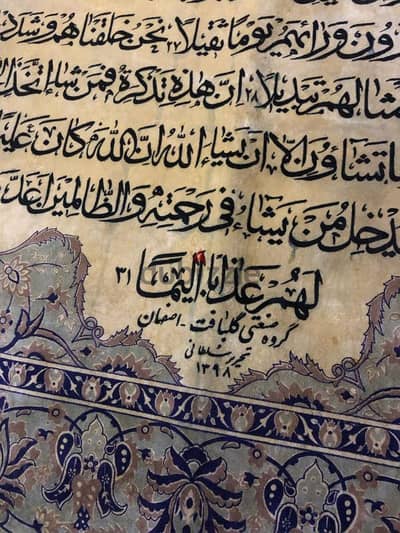 رون ورائهم يوما ثقيلا ٢٧ نحن خلقناهم وشدد
مثالهم تبديلا ٢٨ ان هذه تذكرة فمن شاء اتخذ
ما تشاؤن الا ان يشاء الله ان الله كان عليما
يدخل من يشاء في رحمته والظالمين اعد
لهم عذابا اليما ٣١
گروه صنعتی گلبافت - اصفهان
تحریر سلطانی
١٣٩٨